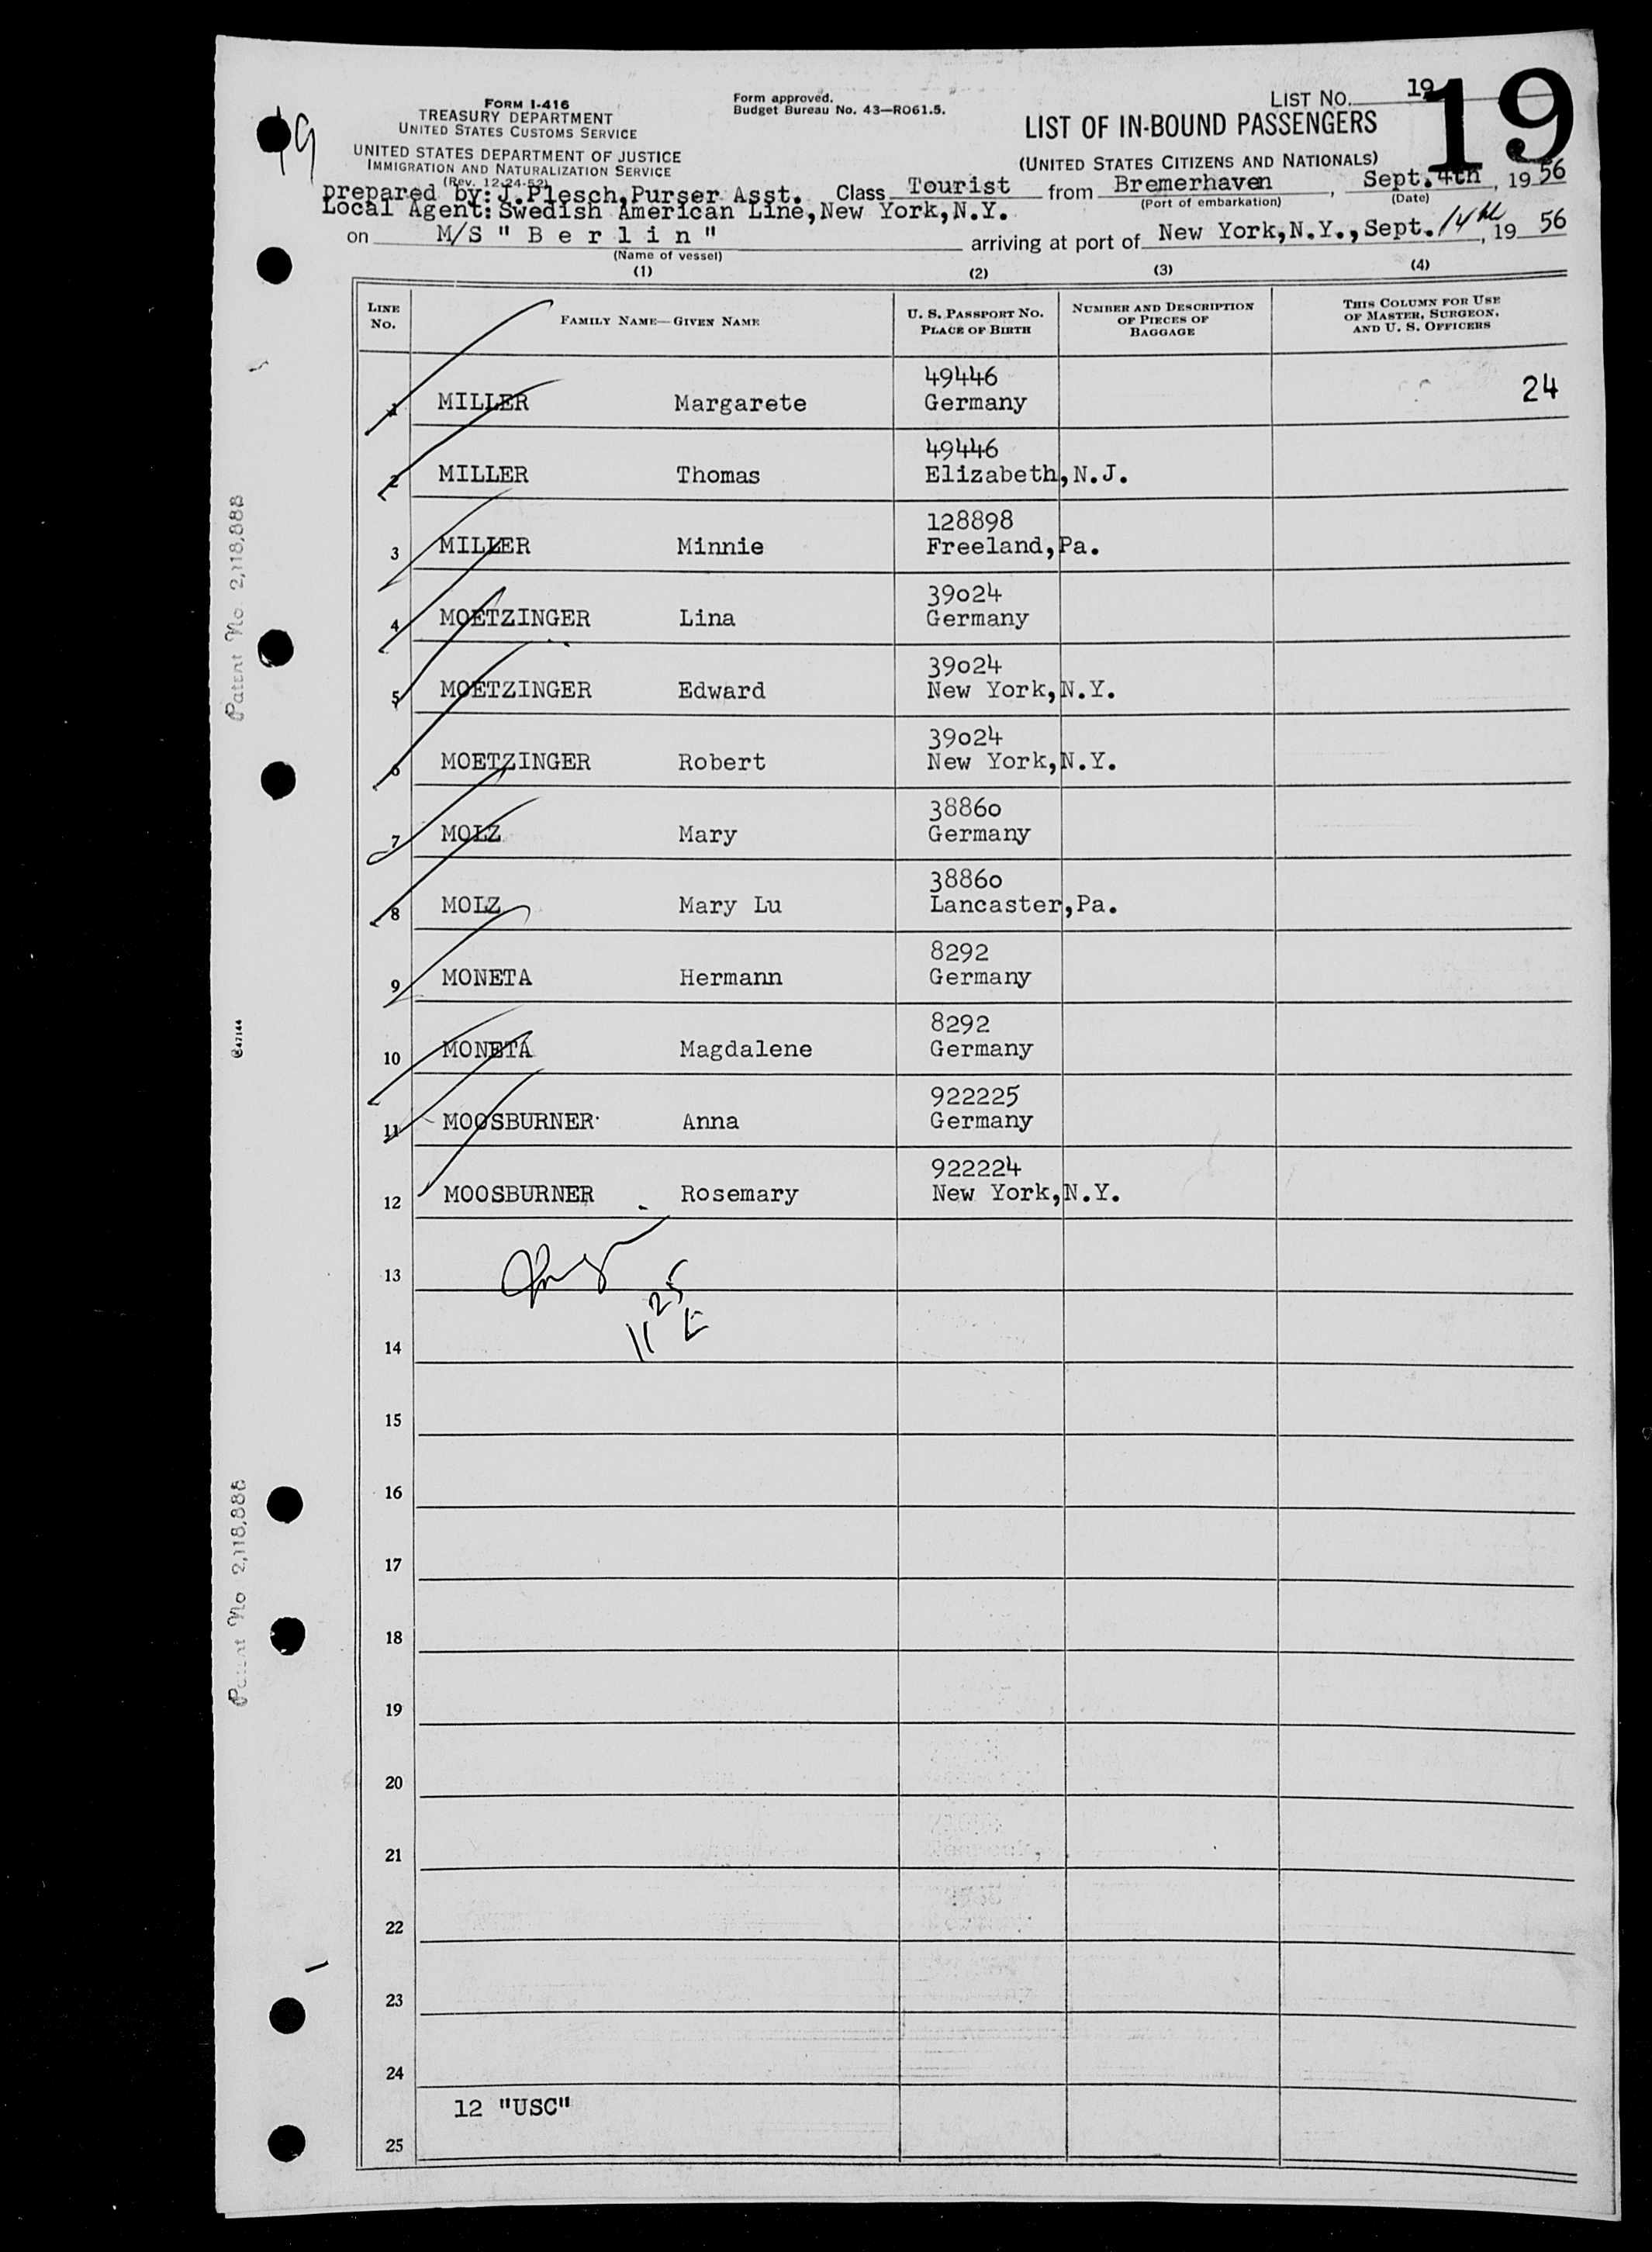 19
FORM I-416
TREASURY DEPARTMENT
UNITED STATES CUSTOMS SERVICE
UNITED STATES DEPARTMENT OF JUSTICE
IMMIGRATION AND NATURALIZATION SERVICE
(Rev. 12-24-52)
Form approved.
Budget Bureau No. 43—RO61.5.
LIST NO. 19
19
LIST OF IN-BOUND PASSENGERS
(UNITED STATES CITIZENS AND NATIONALS)
prepared by: J.Plesch,Purser Asst. Class Tourist from Bremerhaven, Sept.4th, 1956
(Port of embarkation) (Date)
Local Agent: Swedish American Line,New York,N.Y.
on M/S " B e r l i n " arriving at port of New York,N.Y.,Sept. 14th, 1956
(Name of vessel)
(1) (2) (3) (4)
LINE No. FAMILY NAME—GIVEN NAME U. S. PASSPORT NO. PLACE OF BIRTH NUMBER AND DESCRIPTION OF PIECES OF BAGGAGE THIS COLUMN FOR USE OF MASTER, SURGEON, AND U. S. OFFICERS
49446
1 MILLER Margarete Germany 24
49446
2 MILLER Thomas Elizabeth,N.J.
128898
3 MILLER Minnie Freeland,Pa.
39o24
4 MOETZINGER Lina Germany
39o24
5 MOETZINGER Edward New York,N.Y.
39o24
6 MOETZINGER Robert New York,N.Y.
3886o
7 MOLZ Mary Germany
3886o
8 MOLZ Mary Lu Lancaster,Pa.
8292
9 MONETA Hermann Germany
8292
10 MONETA Magdalene Germany
922225
11 MOOSBURNER Anna Germany
922224
12 MOOSBURNER Rosemary New York,N.Y.
13
11 25
14
15
16
17
18
19
20
21
22
23
24
12 "USC"
25
Patent No 2,118,888
C47144
Patent No 2,118,888